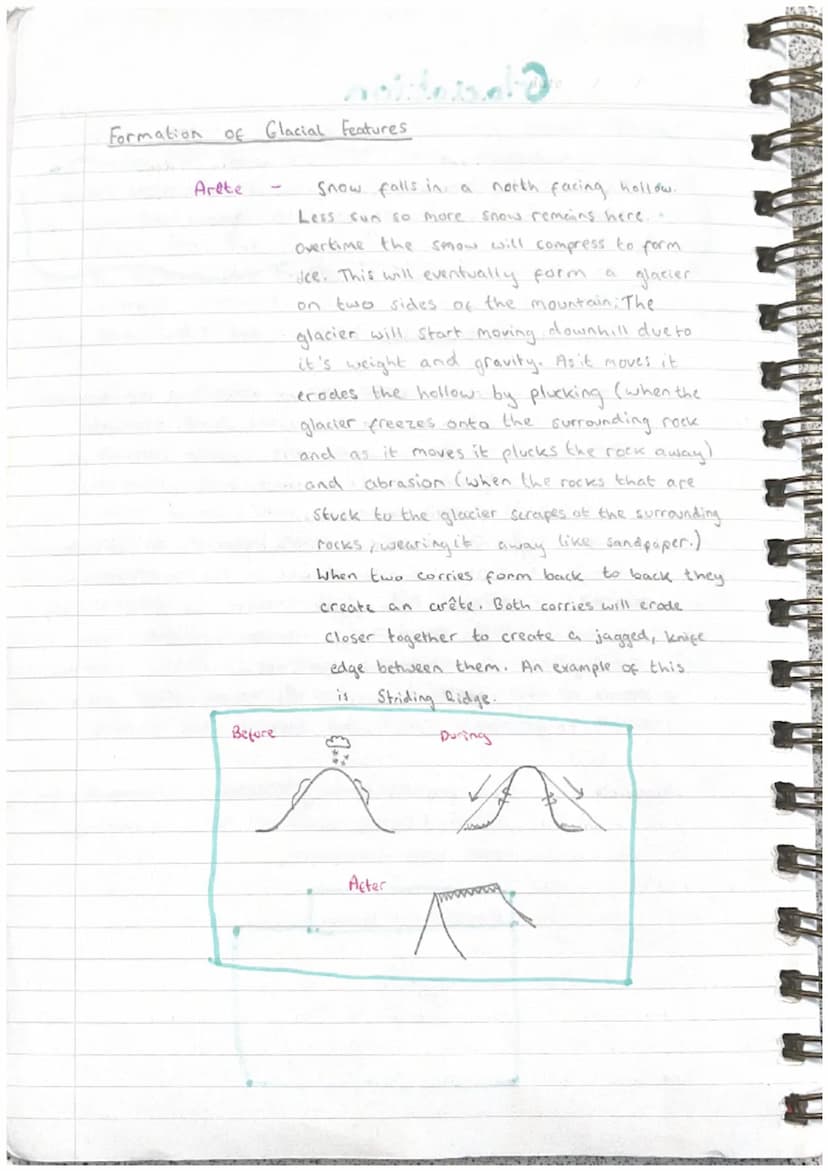 Glaciation
Formation of Glacial Features
Arête - Snow falls in a north facing hollow.
Less sun so more snow remains here.
overtime the snow will compress to form
ice. This will eventually form a glacier
on two sides of the mountain. The
glacier will start moving downhill due to
it's weight and gravity. As it moves it
erodes the hollow by plucking (when the
glacier freezes onto the surrounding rock
and as it moves it plucks the rock away)
and abrasion (when the rocks that are
stuck to the glacier scrapes at the surrounding
rocks, wearing it away like sandpaper.)
When two corries form back to back they
create an arête. Both corries will erode
closer together to create a jagged, knife
edge between them. An example of this
is Striding Ridge.
Before During
After